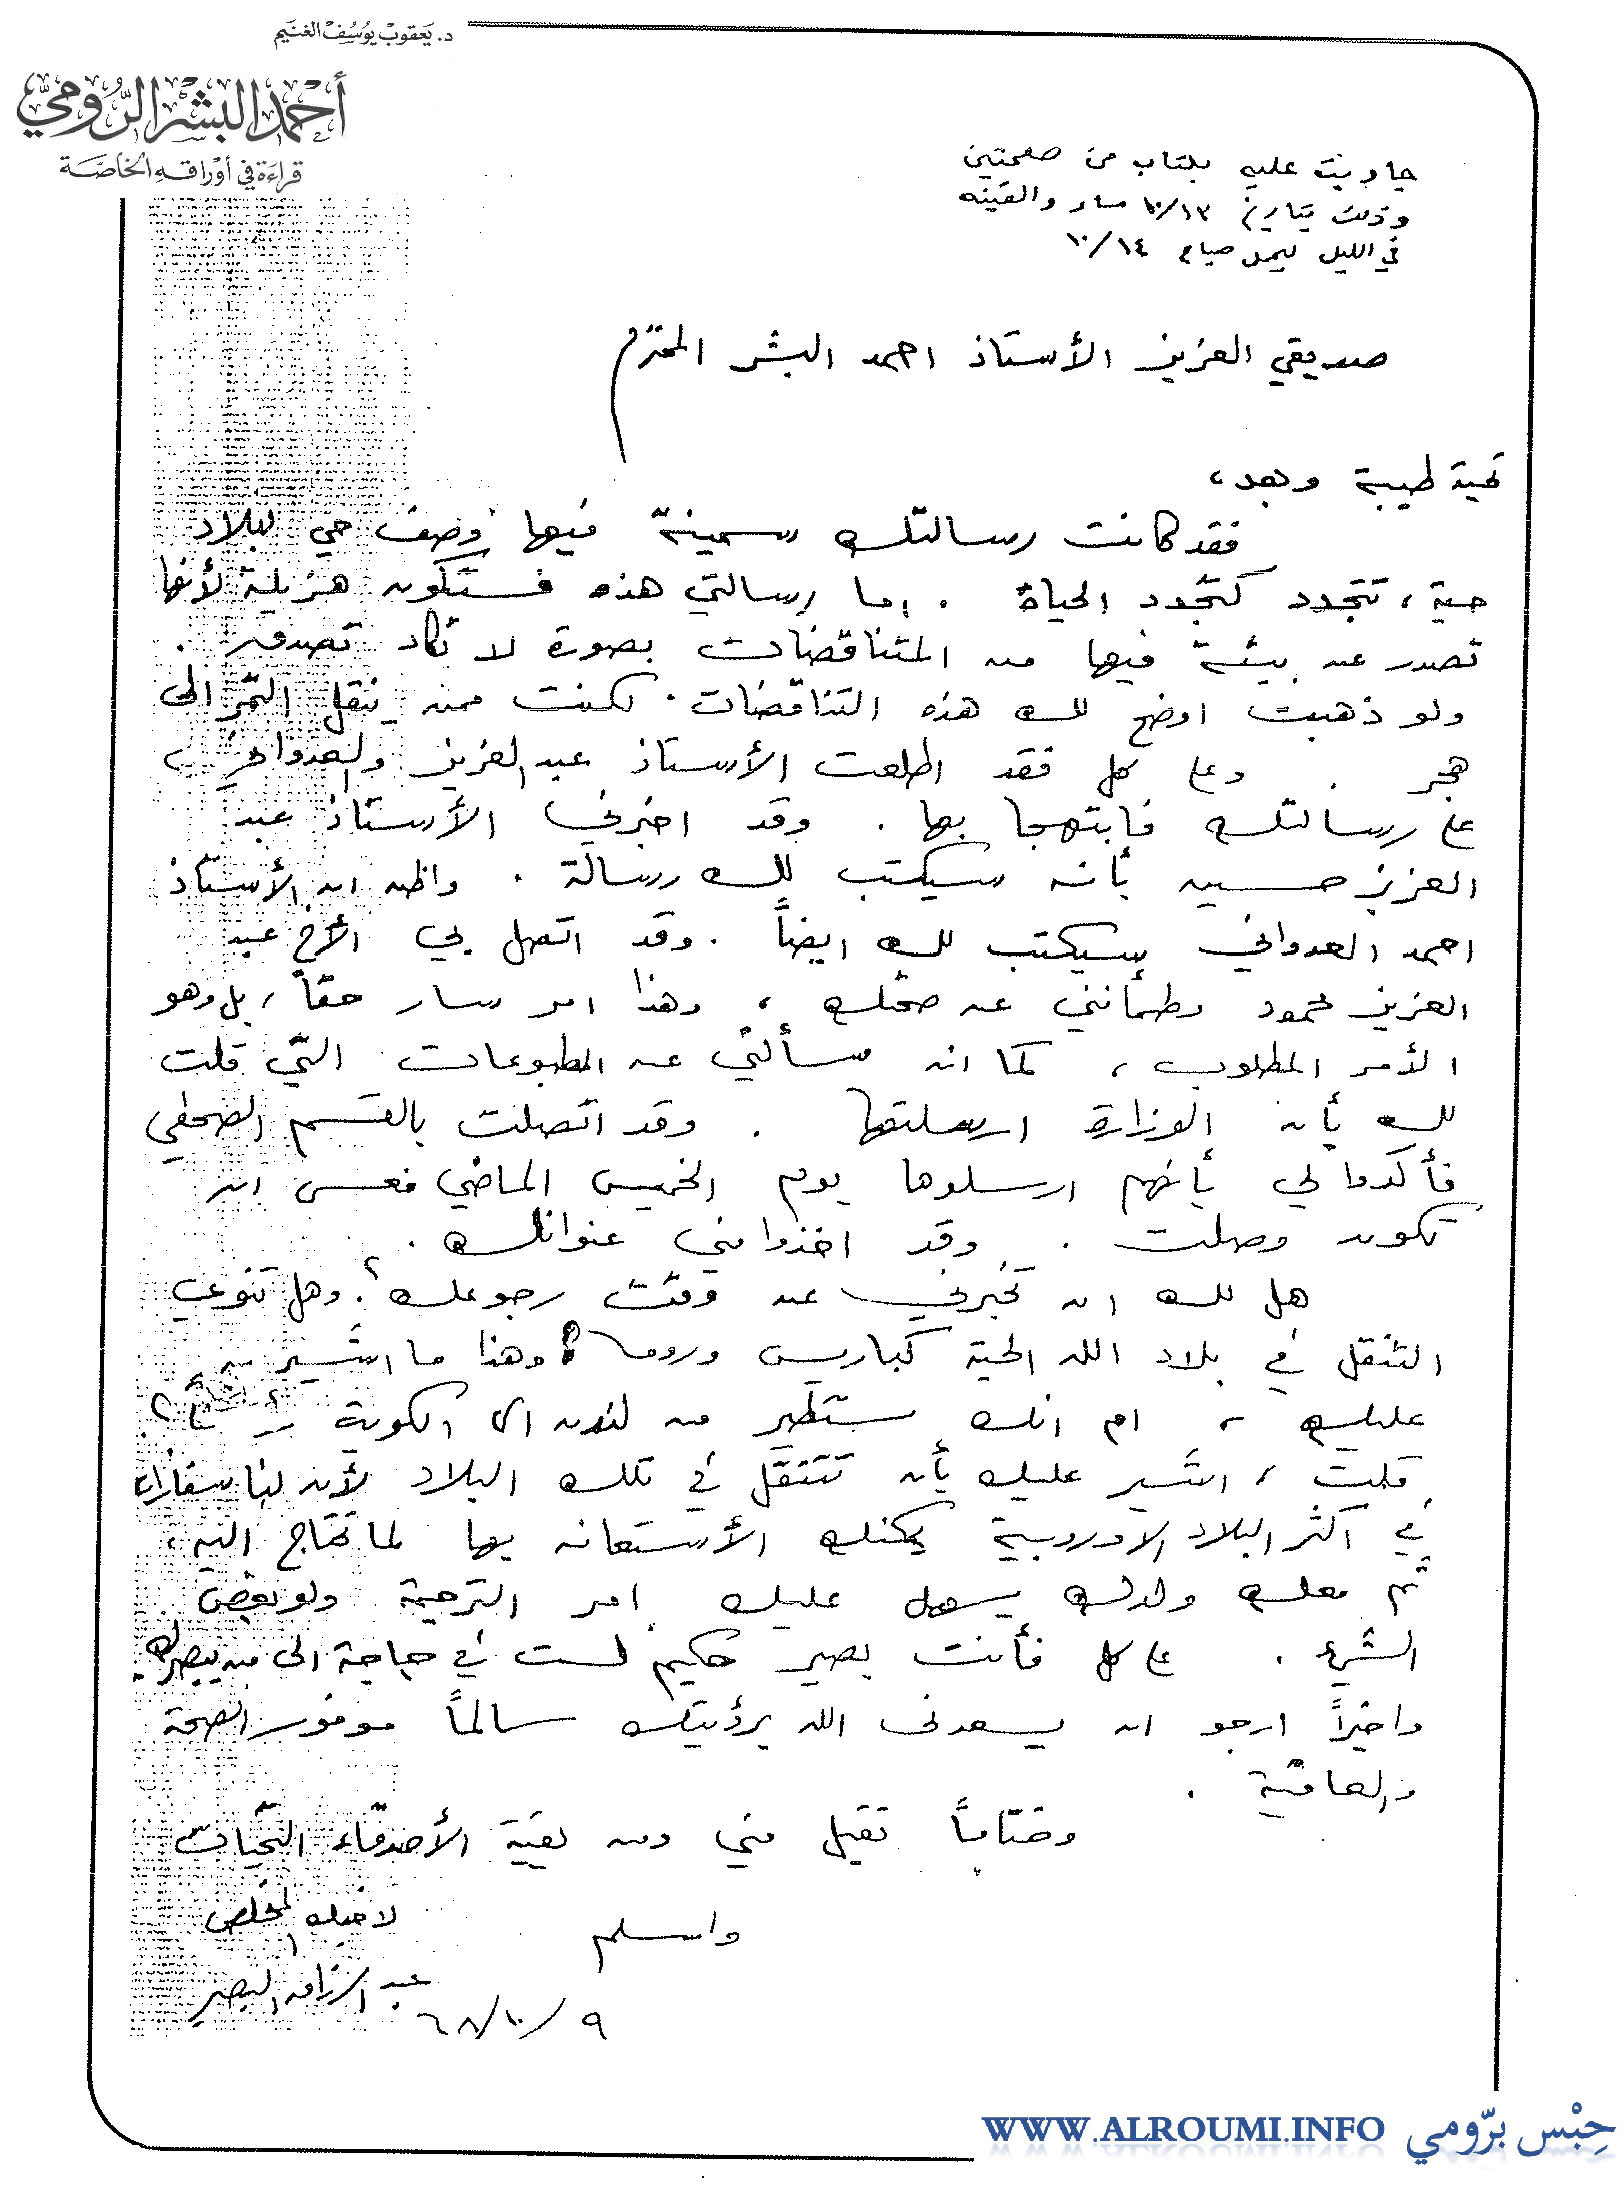 د. يعقوب يوسف الغنيم
أحمد البشر الرومي
قراءة في أوراقه الخاصة
جاوبت عليه بكتاب من صفحتين
وذلك بتاريخ ١٠/١٣ مساء والقيته
في الليل ليحمل صباح ١٠/١٤
صديقي العزيز الأستاذ احمد البشر المحترم
تحية طيبة وبعد،
فقد كانت رسالتك سمينة فيها وصف حي لبلاد
حية، تتجدد كتجدد الحياة . اما رسالتي هذه فستكون هزيلة لأنها
تصدر عن بيئة فيها من المتناقضات بصورة لا تكاد تصدق .
ولو ذهبت اوضح لك هذه التناقضات لكنت كمن ينقل التمر الى
هجر . وعلى كل فقد اطلعت الأستاذ عبد العزيز والعدواني
على رسالتك فابتهجا بها . وقد اخبرني الأستاذ عبد
العزيز حسين بأنه سيكتب لك رسالة . واظن ان الأستاذ
احمد العدواني سيكتب لك ايضاً . وقد اتصل بي الأخ عبد
العزيز محمود وطمأنني عن صحتك ، وهذا امر سار حقاً، بل وهو
الأمر المطلوب ، كما انه سألني عن المطبوعات التي قلت
لك بأن الوزارة ارسلتها . وقد اتصلت بالقسم الصحفي
فأكدوا لي بأنهم ارسلوها يوم الخميس الماضي فعسى ان
تكون وصلت . وقد اخذوا مني عنوانك .
هل لك ان تخبرني عن وقت رجوعك ؟ وهل تنوي
التنقل في بلاد الله الحية كباريس وروما ؟ وهذا ما اشير به
عليك ، ام انك ستطير من لندن الى الكويت ؟
قلت ، اشير عليك بأن تتنقل في تلك البلاد لأن لنا سفارات
في اكثر البلاد الاوروبية يمكنك الأستعانه بها لما تحتاج اليه ،
ثم معك ولدك يسهل عليك امر الترجمة ولو بعض
الشيء . على كل فأنت بصير حكيم لست في حاجة الى من يبصرك .
واخيراً ارجو ان يسعدني الله برؤيتك سالماً موفور الصحة
والعافية .
وختاماً تقبل مني ومن بقية الأصدقاء التحيات
واسلم
لاخيك المخلص
عبد الرزاق البصير
٩/١٠/٦٨
WWW.ALROUMI.INFO حِبْس برّومي